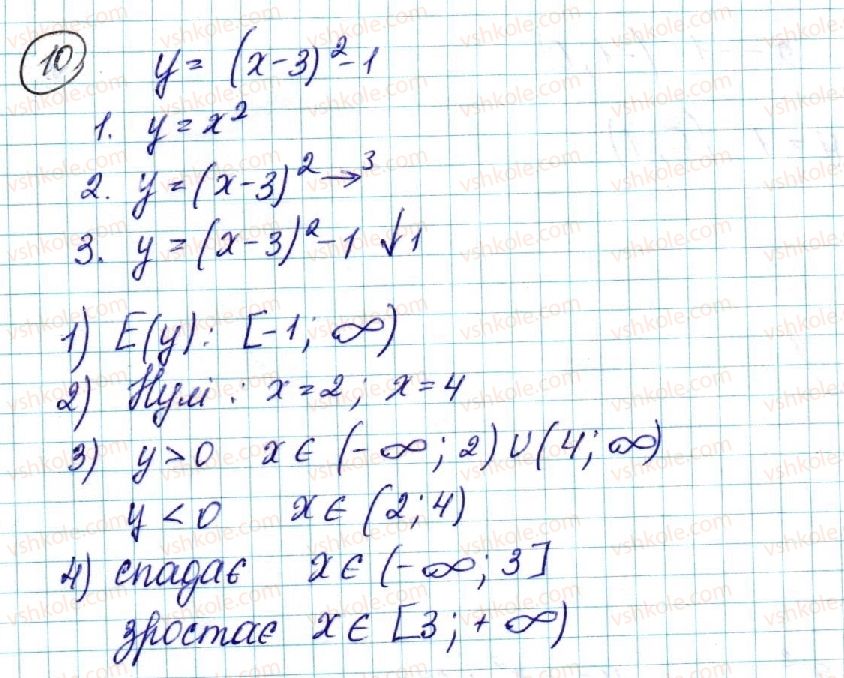 10 y = (x-3)² - 1
1. y = x²
2. y = (x-3)² → 3
3. y = (x-3)² - 1 ↓ 1
1) E(y): [-1; ∞)
2) Нулі: x = 2; x = 4
3) y > 0 x ∈ (-∞; 2) ∪ (4; ∞)
y < 0 x ∈ (2; 4)
4) спадає x ∈ (-∞; 3]
зростає x ∈ [3; +∞)
vshkole.com